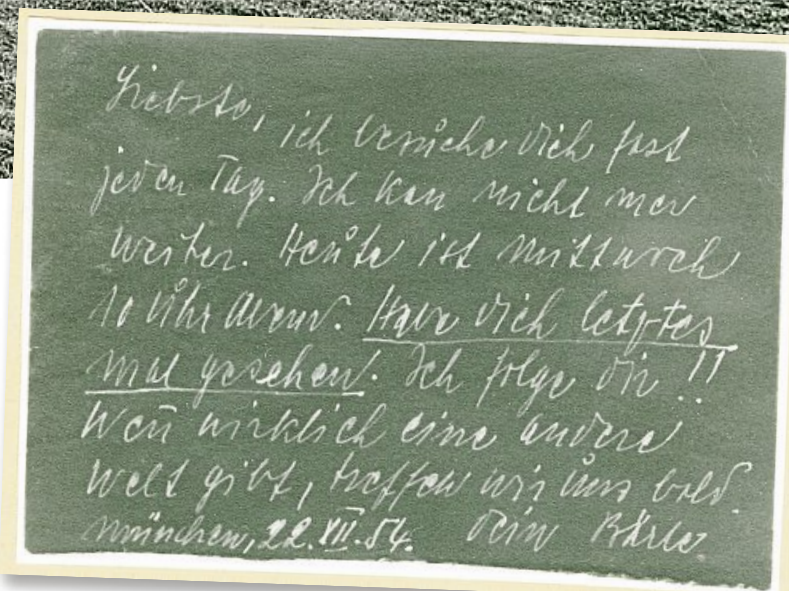 Liebste, ich besuche dich fast
jeden Tag. Ich kan nicht mer
weiter. Heute ist Mittwoch
10 Uhr Abend. Have dich letztes
mal gesehen. Ich folge dir!!
Wen̄ wirklich eine andere
Welt gibt, treffen wir uns bald.
München, 22.XII.54. Dein Bärle